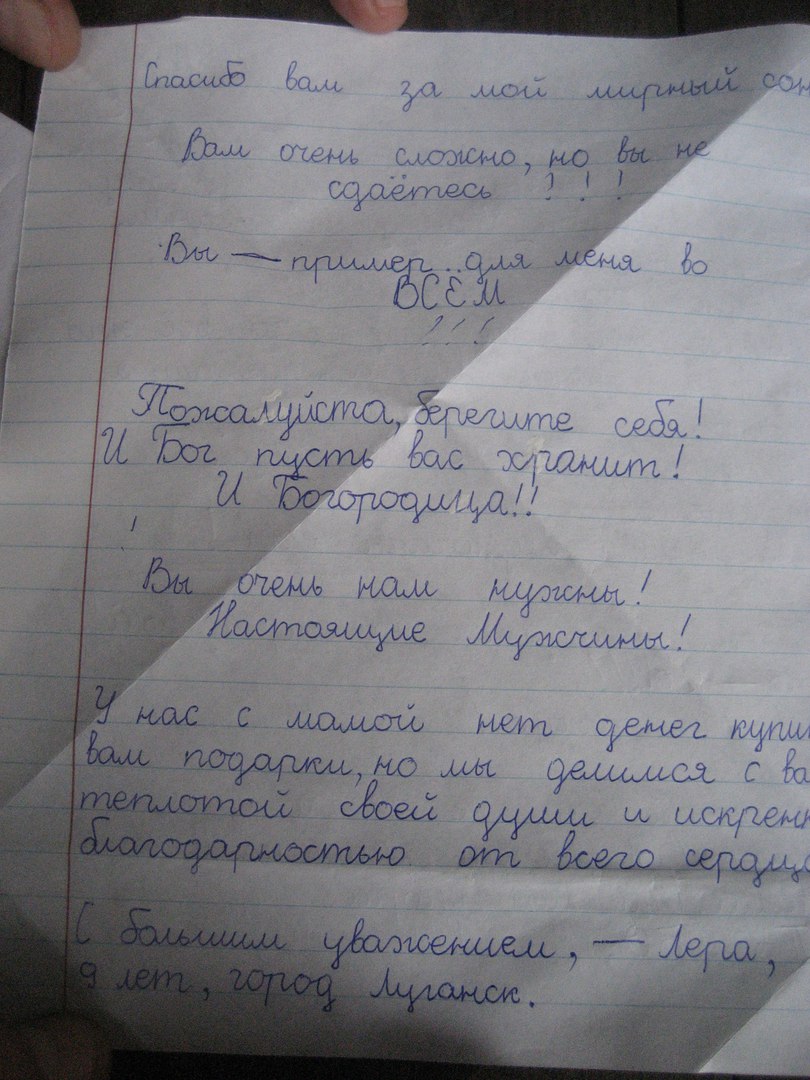 Спасибо вам за мой мирный сон
Вам очень сложно, но вы не
сдаётесь !!!
Вы — пример для меня во
ВСЁМ
!!!
Пожалуйста, берегите себя!
И Бог пусть вас хранит!
И Богородица!!
!
Вы очень нам нужны!
Настоящие Мужчины!
У нас с мамой нет денег купи
вам подарки, но мы делимся с ва
теплотой своей души и искренн
благодарностью от всего сердца
С большим уважением, — Лера,
9 лет, город Луганск.